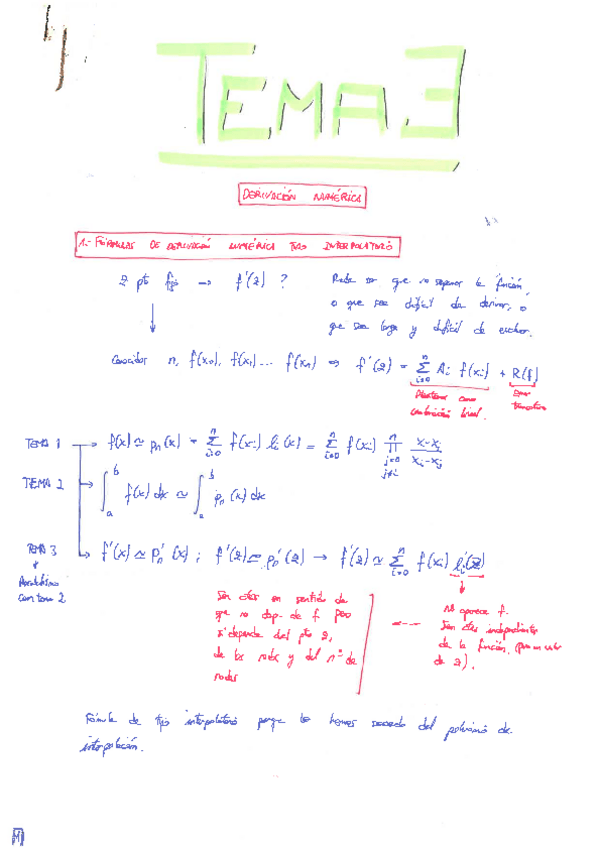 TEMA 3
DERIVACIÓN NUMÉRICA
1.- FÓRMULAS DE DERIVACIÓN NUMÉRICA TIPO INTERPOLATORIO
z pto fijo → f'(z) ?
Puede ser que no sepamos la función,
o que sea difícil de derivar, o
que sea larga y difícil de evaluar.
Conocidos n, f(x₀), f(x₁) ... f(xₙ) ⇒ f'(z) = Σ_{i=0}^{n} Aᵢ f(xᵢ) + R(f)
combinación lineal.
Error
TEMA 1 → f(x) ≃ pₙ(x) = Σ_{i=0}^{n} f(xᵢ) lᵢ(x) = Σ_{i=0}^{n} f(xᵢ) ∏_{j=0, j≠i}^{n} (x-xⱼ)/(xᵢ-xⱼ)
TEMA 2 → ∫_a^b f(x) dx ≃ ∫_a^b pₙ(x) dx
TEMA 3 → f'(x) ≃ pₙ'(x) ; f'(z) ≃ pₙ'(z) → f'(z) ≃ Σ_{i=0}^{n} f(xᵢ) lᵢ'(z)
con tema 2
Son ctes en sentido de
que no dep. de f pero
sí depende del pto z,
de los nodos y del nº de
nodos
No aparece f.
Son ctes independientes
de la función, (para un valor
de z).
Fórmula de tipo interpolatorio porque lo hemos sacado del polinomio de
interpolación.
M